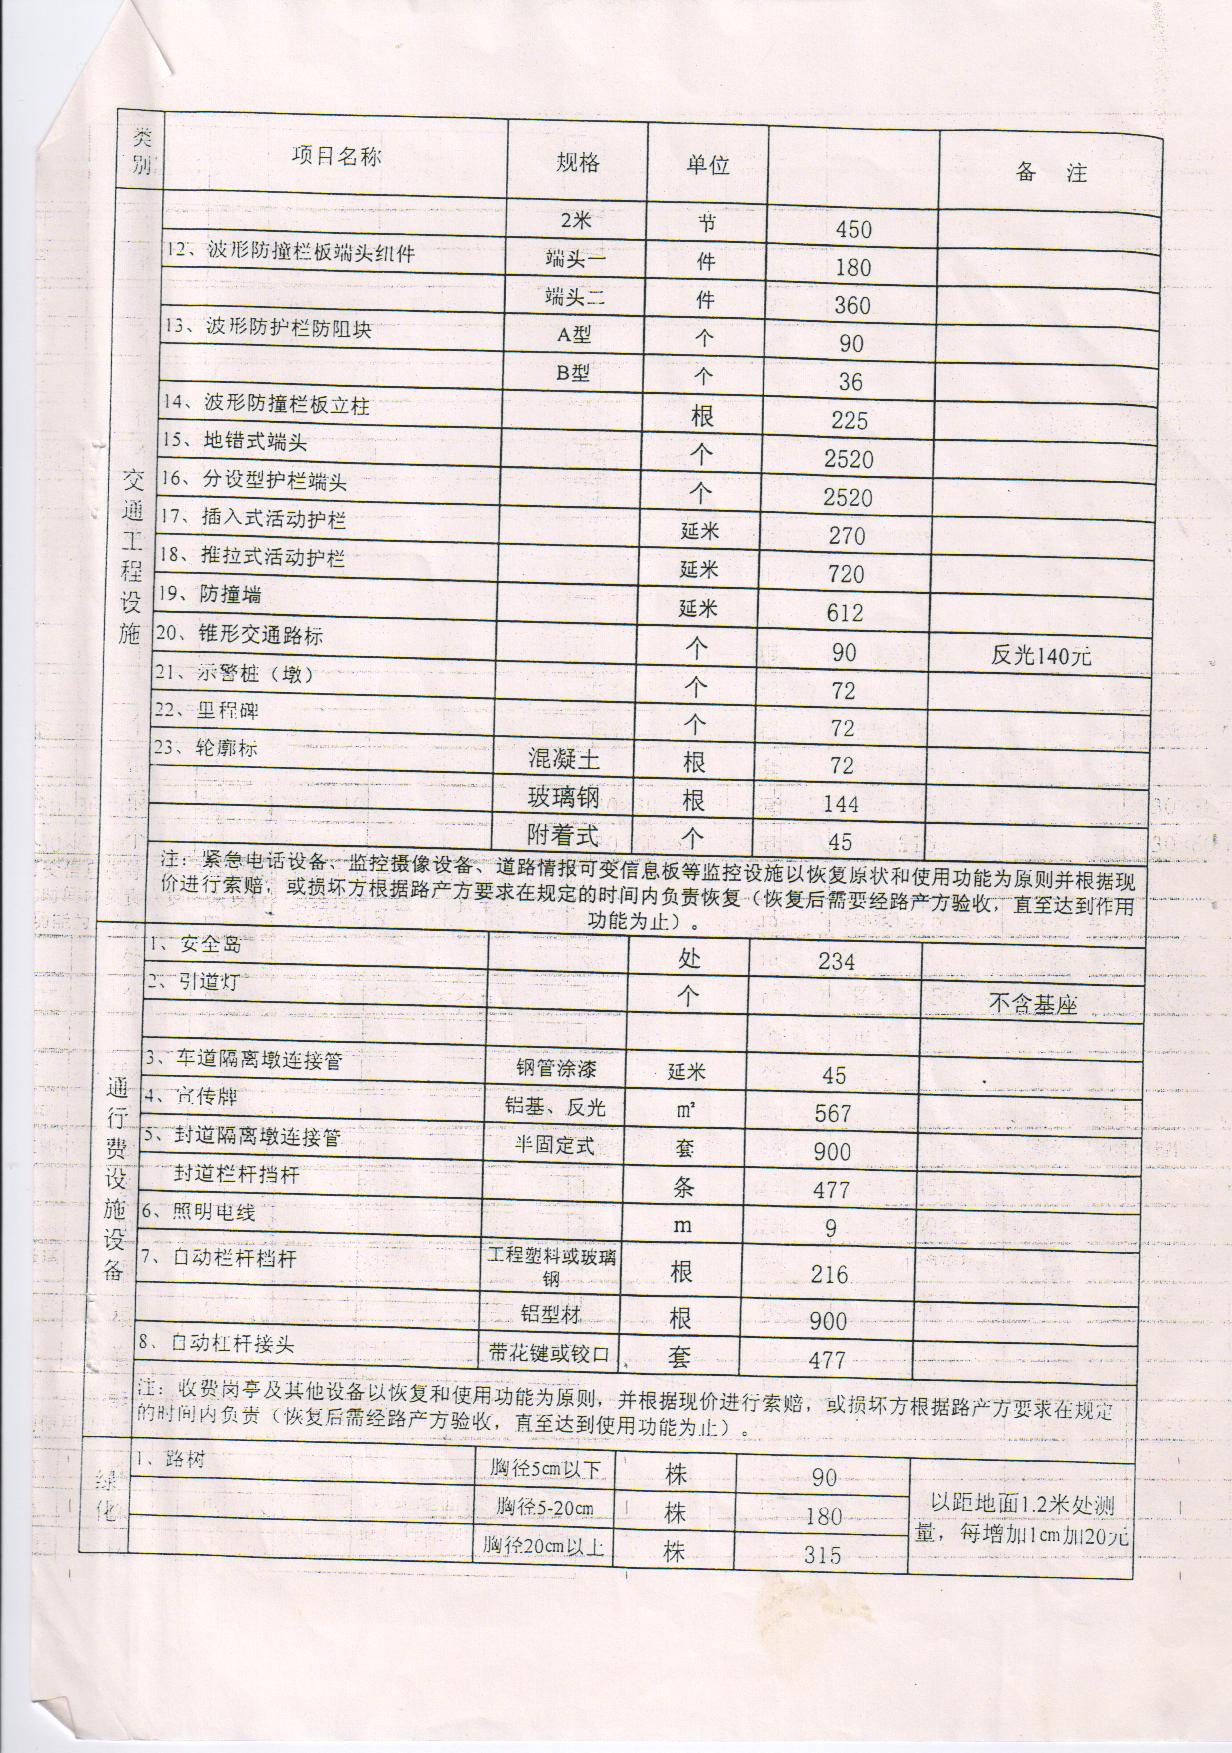 类别 项目名称 规格 单位 备 注
交通工程设施
2米 节 450
12、波形防撞栏板端头组件 端头一 件 180
端头二 件 360
13、波形防护栏防阻块 A型 个 90
B型 个 36
14、波形防撞栏板立柱 根 225
15、地错式端头 个 2520
16、分设型护栏端头 个 2520
17、插入式活动护栏 延米 270
18、推拉式活动护栏 延米 720
19、防撞墙 延米 612
20、锥形交通路标 个 90 反光140元
21、示警桩（墩） 个 72
22、里程碑 个 72
23、轮廓标 混凝土 根 72
玻璃钢 根 144
附着式 个 45
注：紧急电话设备、监控摄像设备、道路情报可变信息板等监控设施以恢复原状和使用功能为原则并根据现
价进行索赔，或损坏方根据路产方要求在规定的时间内负责恢复（恢复后需要经路产方验收，直至达到作用
功能为止）。
通行费设施设备
1、安全岛 处 234
2、引道灯 个 不含基座
3、车道隔离墩连接管 钢管涂漆 延米 45
4、宣传牌 铝基、反光 m² 567
5、封道隔离墩连接管 半固定式 套 900
封道栏杆挡杆 条 477
6、照明电线 m 9
7、自动栏杆档杆 工程塑料或玻璃
钢 根 216
铝型材 根 900
8、自动杠杆接头 带花键或铰口 套 477
注：收费岗亭及其他设备以恢复和使用功能为原则，并根据现价进行索赔，或损坏方根据路产方要求在规定
的时间内负责（恢复后需经路产方验收，直至达到使用功能为止）。
绿化
1、路树 胸径5cm以下 株 90
胸径5-20cm 株 180
胸径20cm以上 株 315
以距地面1.2米处测
量，每增加1cm加20元